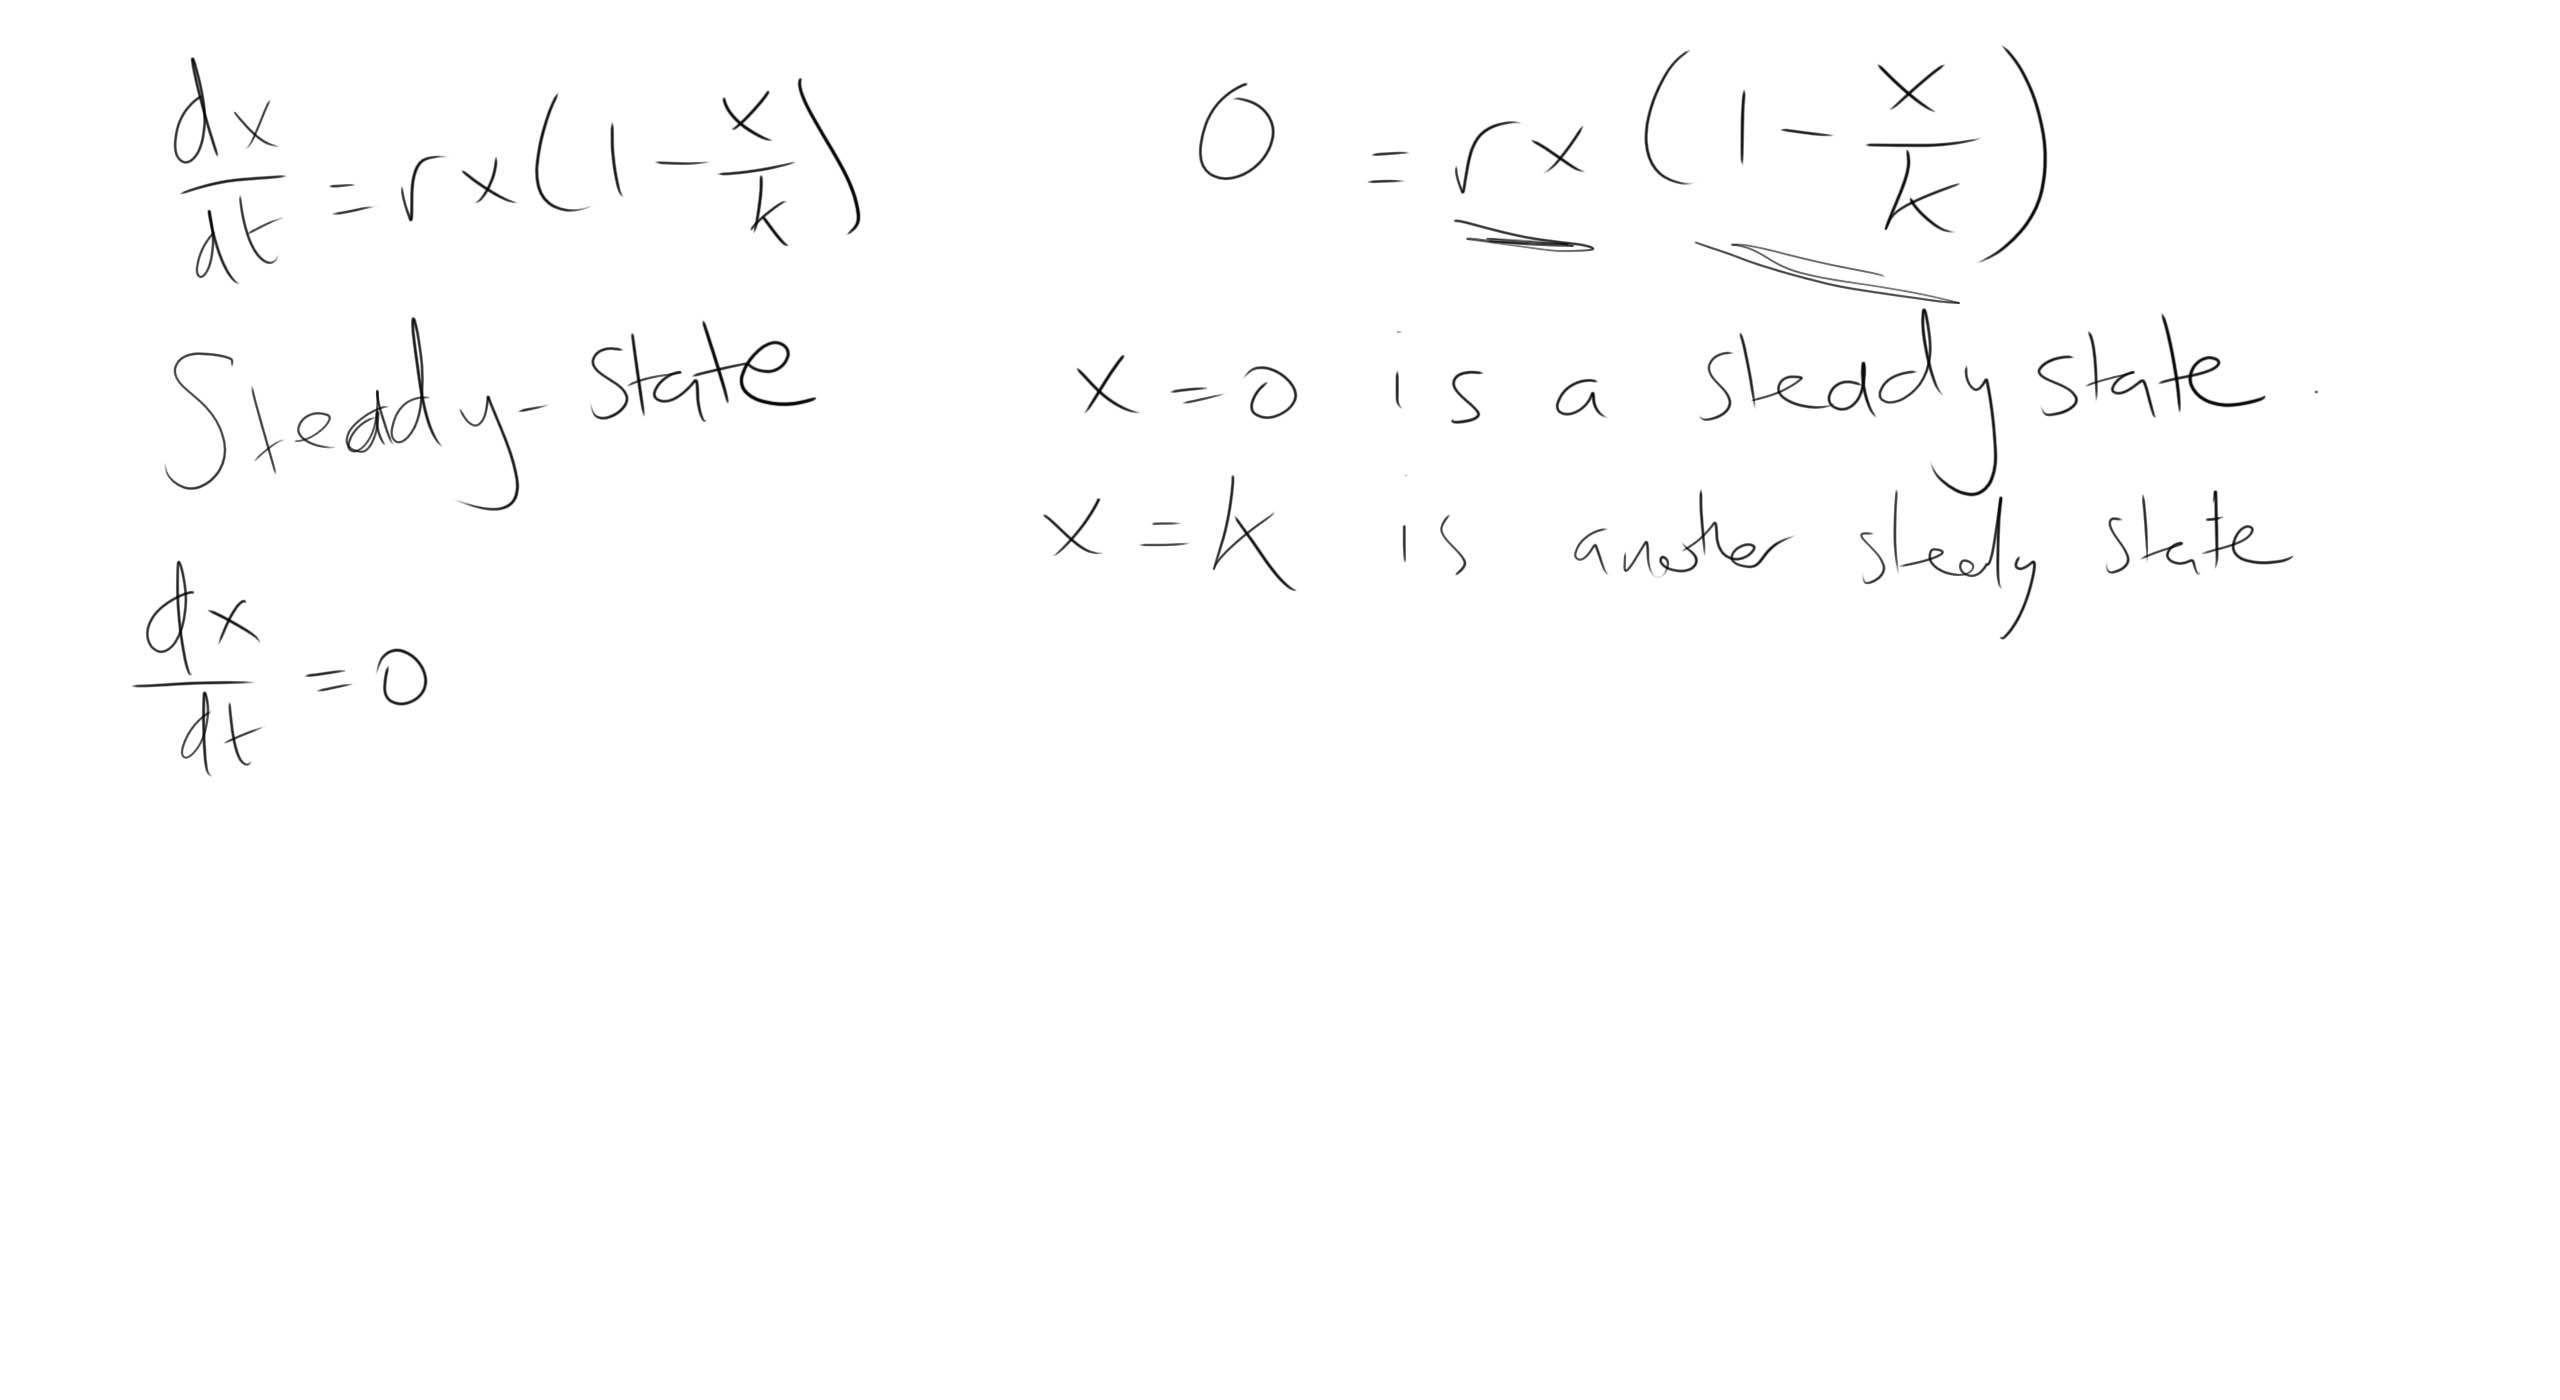 dx/dt = rx(1 - x/k)
Steady-state
dx/dt = 0
0 = rx(1 - x/k)
x = 0 is a steady state.
x = k is another steady state